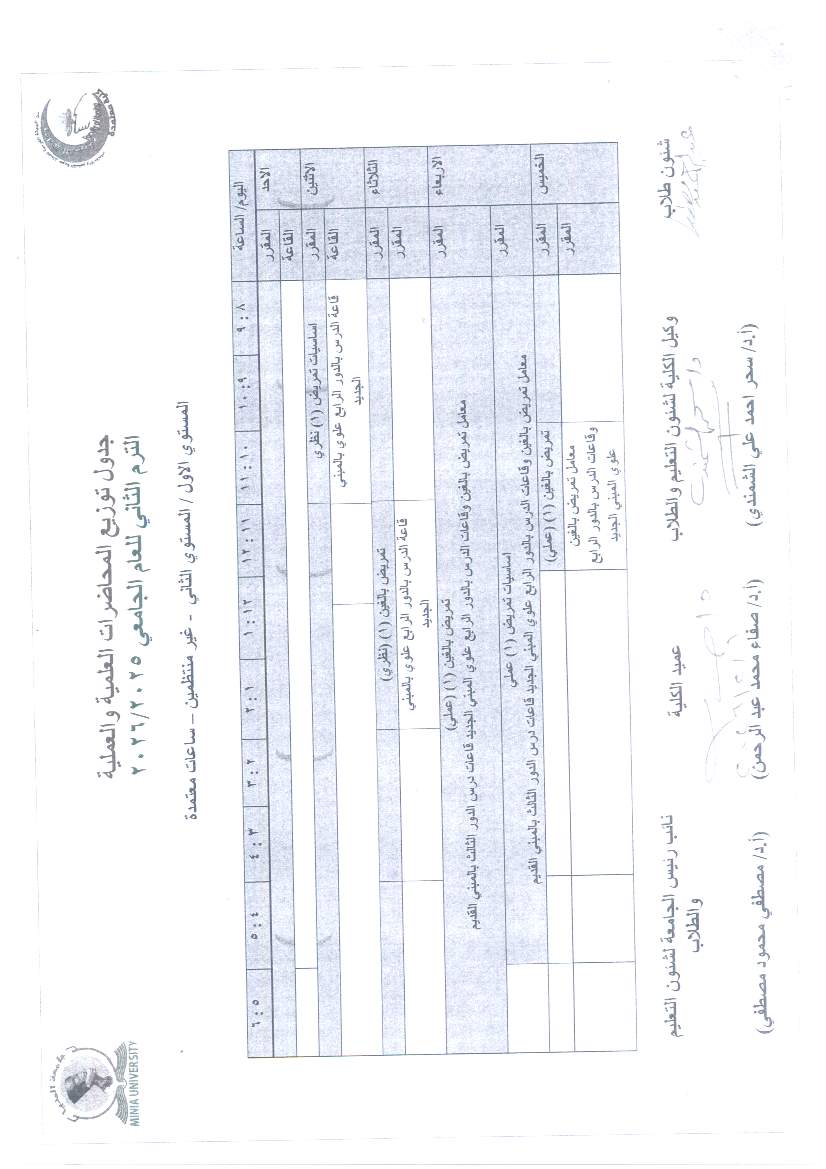 جدول توزيع المحاضرات العلمية والعملية
الترم الثاني للعام الجامعي ٢٠٢٦/٢٠٢٥
المستوي الاول / المستوي الثاني – غير منتظمين – ساعات معتمدة
MINIA UNIVERSITY
اليوم/ الساعة
٩ : ٨
١٠ : ٩
١١ : ١٠
١٢ : ١١
١ : ١٢
٢ : ١
٣ : ٢
٤ : ٣
٥ : ٤
٦ : ٥
الاحد
المقرر
القاعة
الاثنين
المقرر
اساسيات تمريض (١) نظري
القاعة
قاعة الدرس بالدور الرابع علوي بالمبني
الجديد
الثلاثاء
المقرر
تمريض بالغين (١) (نظري)
المقرر
قاعة الدرس بالدور الرابع علوي بالمبني
الجديد
الاربعاء
المقرر
تمريض بالغين (١) (عملي)
معامل تمريض بالغين وقاعات الدرس بالدور الرابع علوي المبني الجديد قاعات درس الدور الثالث بالمبني القديم
المقرر
اساسيات تمريض (١) عملي
معامل تمريض بالغين وقاعات الدرس بالدور الرابع علوي المبني الجديد قاعات درس الدور الثالث بالمبني القديم
الخميس
المقرر
تمريض بالغين (١) (عملي)
المقرر
معامل تمريض بالغين
وقاعات الدرس بالدور الرابع
علوي المبني الجديد
شئون طلاب
وكيل الكلية لشئون التعليم والطلاب
عميد الكلية
نائب رئيس الجامعة لشئون التعليم
والطلاب
(أ.د/ سحر احمد علي الشمندي)
(أ.د/ صفاء محمد عبد الرحمن)
(أ.د/ مصطفي محمود مصطفي)